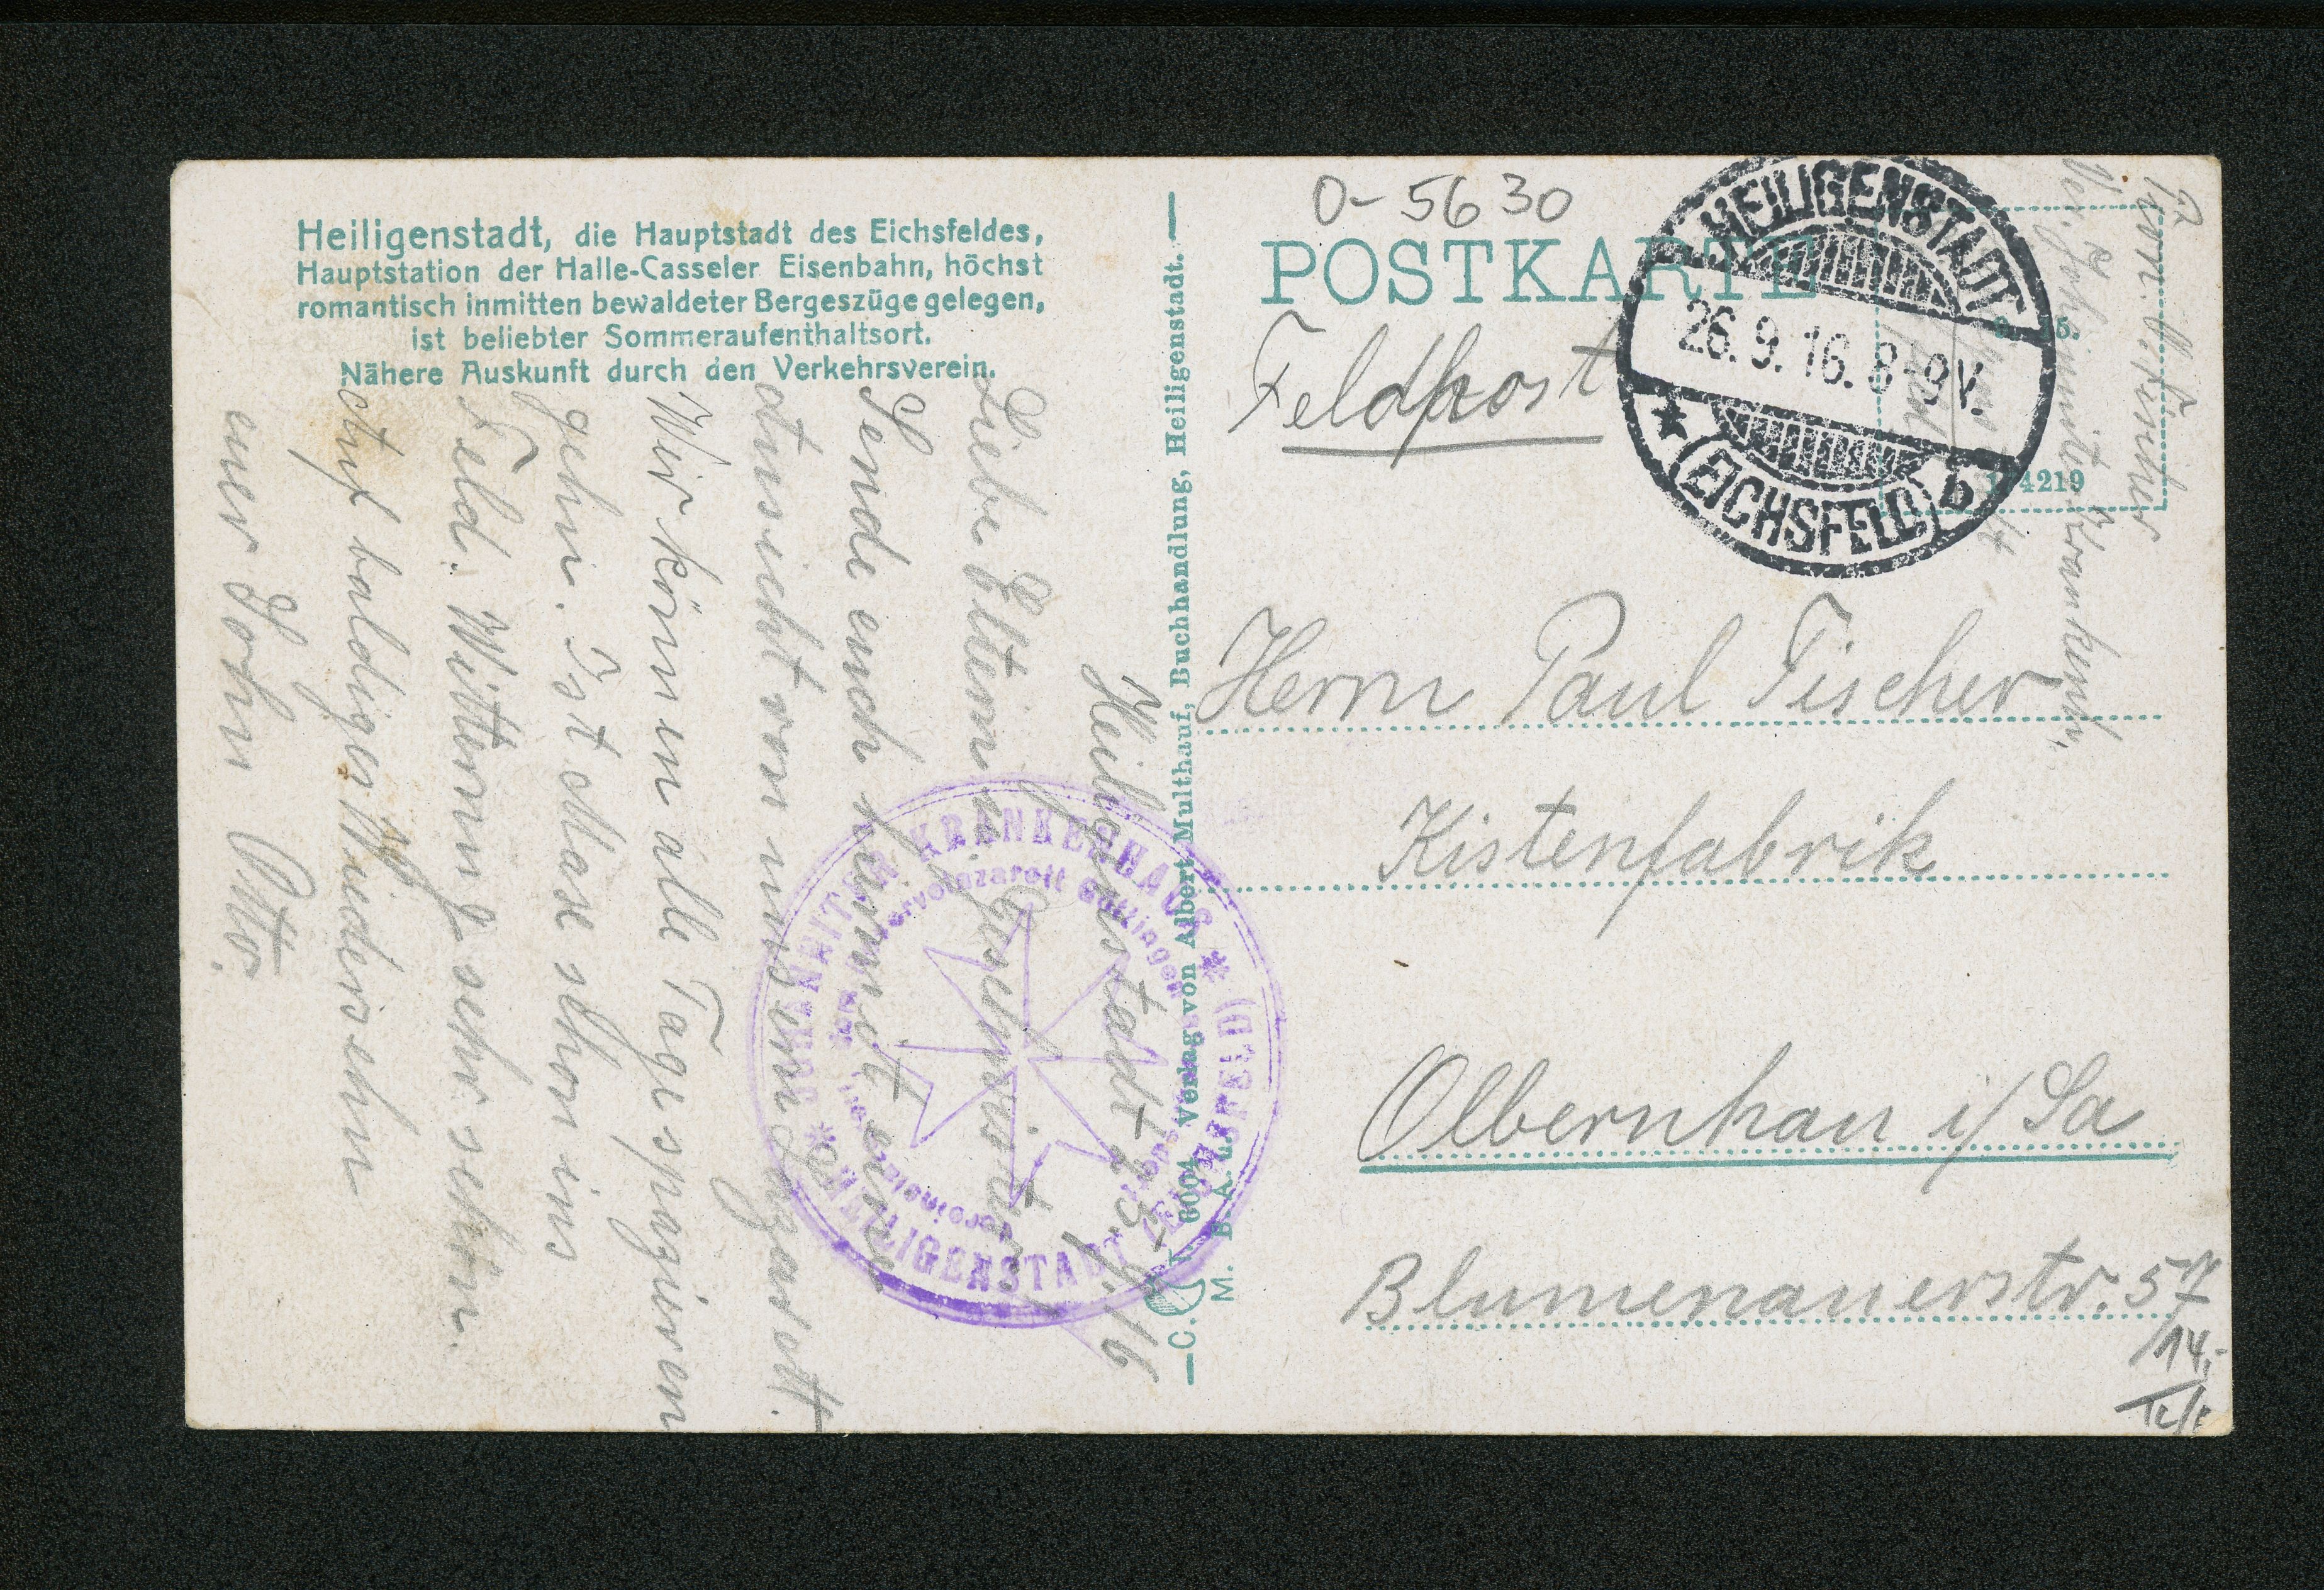 Heiligenstadt, die Hauptstadt des Eichsfeldes,
Hauptstation der Halle-Casseler Eisenbahn, höchst
romantisch inmitten bewaldeter Bergeszüge gelegen,
ist beliebter Sommeraufenthaltsort.
Nähere Auskunft durch den Verkehrsverein.
Heiligenstadt 25.9.16
Liebe Eltern u. Geschwister,
Sende euch hiermit eine
Ansicht von unserm Lazarett.
Wir könn in alle Tage spaziren
gehn. Ist Max schon ins
Feld. Witterung sehr schön.
Auf baldiges Wiedersehn
euer Sohn Otto.
JOHANNITER KRANKENHAUS
HEILIGENSTADT (EICHSFELD)
Reservelazarett Göttingen
Vereinslazarett
C. 6001 Verlag von Albert Multhauf, Buchhandlung, Heiligenstadt.
M. B. A. L.
0-5630
POSTKARTE
Feldpost
HEILIGENSTADT
26.9.16. 8-9V.
(EICHSFELD) b
174219
Johanniter Krankenh.
Herrn Paul Fischer
Kistenfabrik
Olbernhau i/Sa
Blumenauerstr. 57
14,-